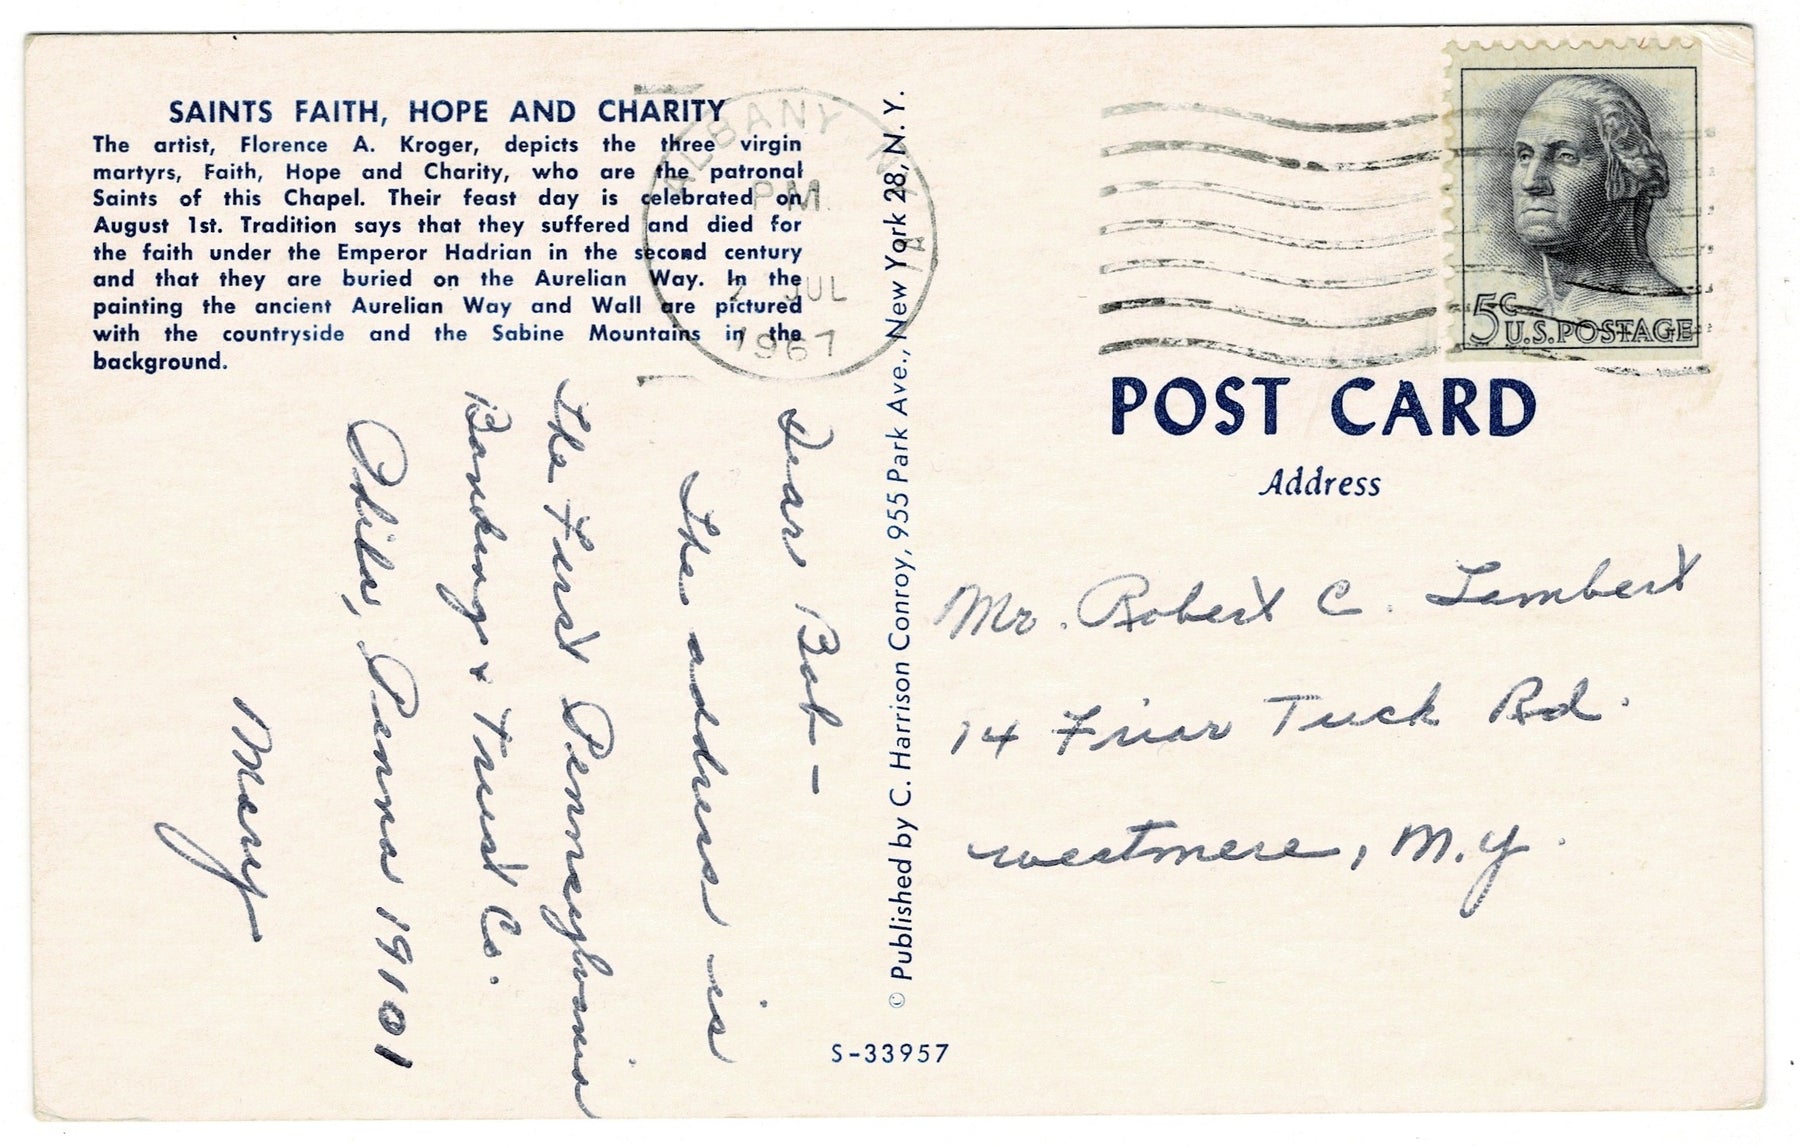 SAINTS FAITH, HOPE AND CHARITY
The artist, Florence A. Kroger, depicts the three virgin
martyrs, Faith, Hope and Charity, who are the patronal
Saints of this Chapel. Their feast day is celebrated on
August 1st. Tradition says that they suffered and died for
the faith under the Emperor Hadrian in the second century
and that they are buried on the Aurelian Way. In the
painting the ancient Aurelian Way and Wall are pictured
with the countryside and the Sabine Mountains in the
background.
Dear Bob —
The address is
The First Pennsylvania
Banking & Trust Co.
Phila, Penna 19101
Mary
© Published by C. Harrison Conroy, 955 Park Ave., New York 28, N. Y.
S-33957
ALBANY N.Y.
PM
2 JUL
1967
5¢ U.S. POSTAGE
POST CARD
Address
Mr. Robert C. Lambert
14 Friar Tuck Rd.
Westmere, N.Y.